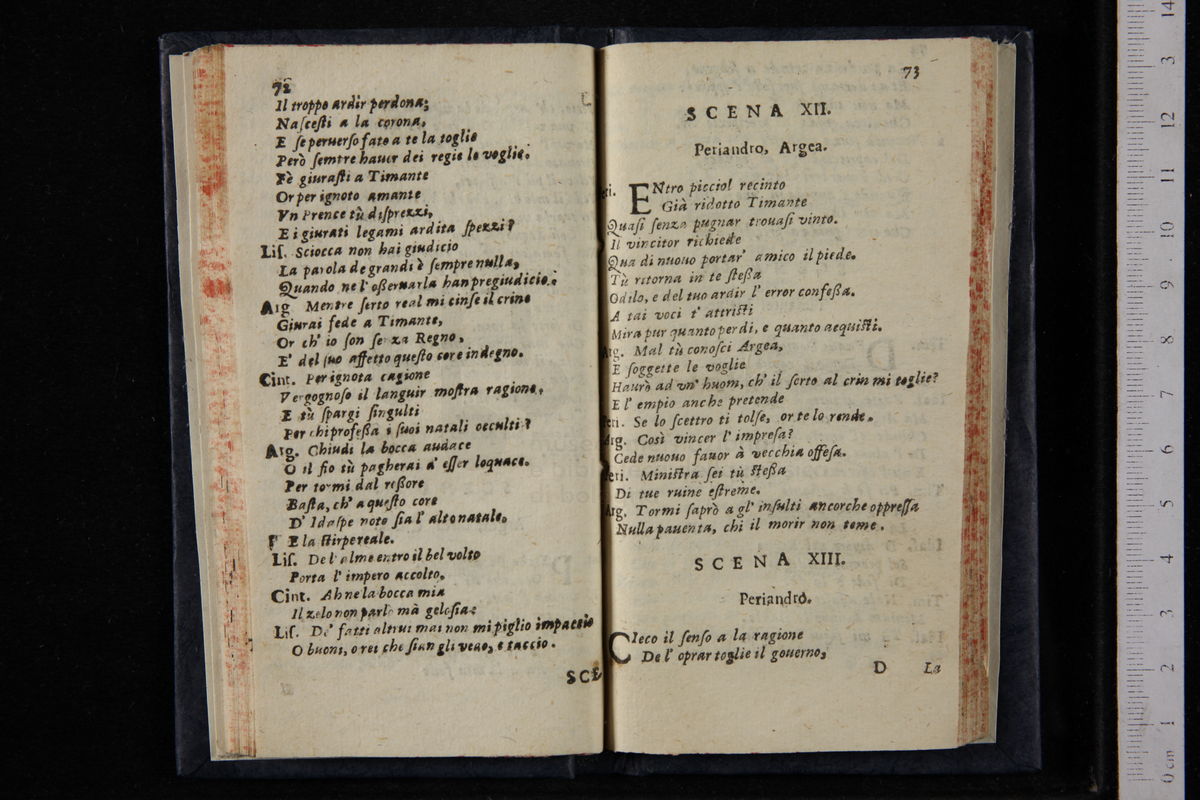 72
Il troppo ardir perdona;
Nascesti a la corona,
E se peruerso fato a te la toglie
Però semtre hauer dei regie le voglie.
Fè giurasti a Timante
Or per ignoto amante
Vn Prence tù disprezzi,
E i giurati legami ardita spezzi?
Lis. Sciocca non hai giudicio
La parola de grandi è sempre nulla,
Quando ne l'osseruarla han pregiudicio.
Arg Mentre serto real mi cinse il crine
Giurai fede a Timante,
Or ch'io son senza Regno,
E' del suo affetto questo core indegno.
Cint. Per ignota cagione
Vergognoso il languir mostra ragione,
E tù spargi singulti
Per chi professa i suoi natali occulti?
Arg. Chiudi la bocca audace
O il fio tù pagherai d'esser loquace.
Per tormi dal rossore
Basta, ch'a questo core
D'Idaspe noto sia l'alto natale,
E la stirpe reale.
Lis. De l'alme entro il bel volto
Porta l'impero accolto.
Cint. Ah ne la bocca mia
Il zelo non parla mà gelosia:
Lis. De' fatti altrui mai non mi piglio impaccio
O buoni, o rei che sian gli veao, e taccio.
SCE
73
SCENA XII.
Periandro, Argea.
eri. ENtro picciol recinto
Già ridotto Timante
Quasi senza pugnar trouasi vinto.
Il vincitor richiede
Qua di nuouo portar' amico il piede.
Tù ritorna in te stessa
Odilo, e del tuo ardir l'error confessa.
A tai voci t'attristi
Mira pur quanto perdi, e quanto acquisti.
Arg. Mal tù conosci Argea,
E soggette le voglie
Haurò ad vn' huom, ch'il serto al crin mi toglie?
E l'empio anche pretende
Peri. Se lo scettro ti tolse, or te lo rende.
Arg. Così vincer l'impresa?
Cede nuouo fauor à vecchia offesa.
Peri. Ministra sei tù stessa
Di tue ruine estreme.
Arg. Tormi saprò a gl'insulti ancorche oppressa
Nulla pauenta, chi il morir non teme.
SCENA XIII.
Periandro.
CIeco il senso a la ragione
De l'oprar toglie il gouerno,
D La
0 cm 1 2 3 4 5 6 7 8 9 10 11 12 3 14